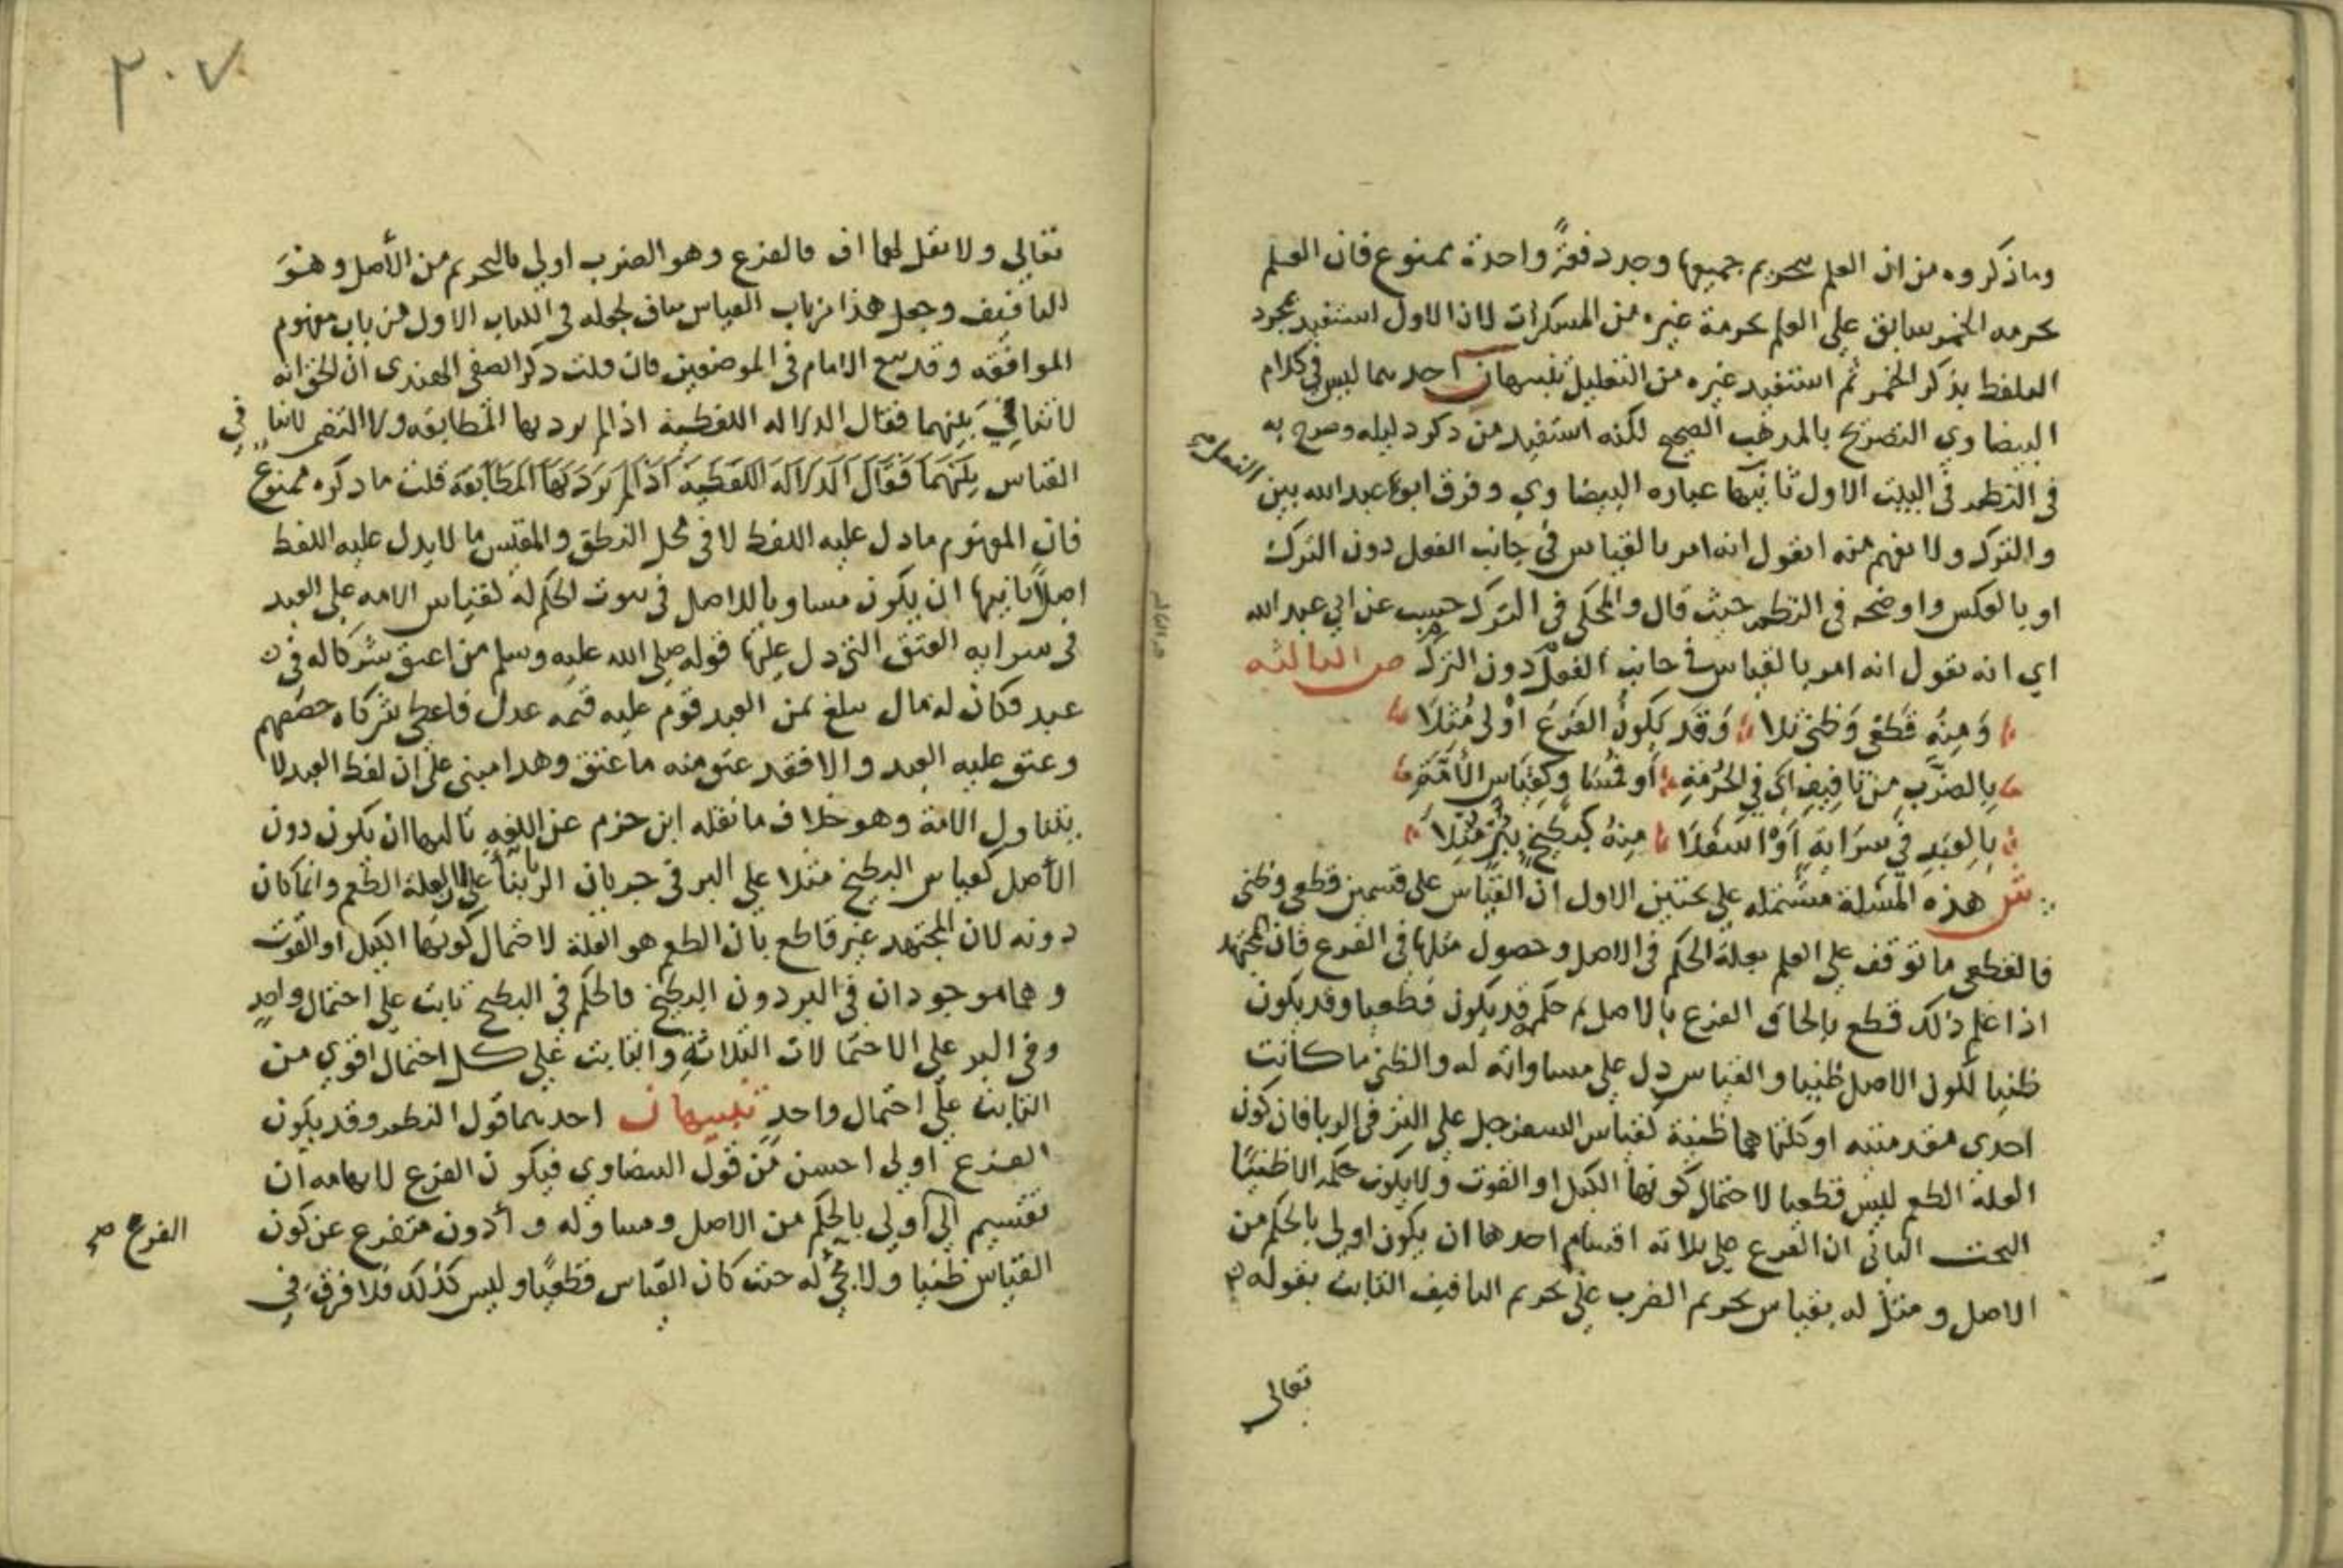 وما ذكروه من ان العلم بتحريم جميعها وجد دفعةً واحدة ممنوع فان العلم
بحرمه الخمر سابق علي العلم بحرمة غيره من المسكرات لان الاول استفيد بمجرد
اللفظ بذكر الخمر ثم استفيد غيره من التعليل تنبيهان احدهما ليس في كلام
البيضاوي التصريح بالمذهب الصحيح لكنه استفيد من ذكر دليله وصرح به
في النظم في البيت الاول ثانيها عباره البيضاوي وفرق ابو عبدالله بين الفعل صح
والترك ولا يفهم منه ايقول انه امر بالقياس في جانب الفعل دون الترك
او بالعكس واوضحه في النظم حيث قال والمحكي في الترك حسب عن ابي عبد الله
اي انه يقول انه امر بالقياس في جانب الفعل دون الترك ص الثالثه
وَمِنْه قَطعي وَظني تلا وَقَد يَكونُ الفَرعُ اوْلى مُثلا
بِالضَّربِ مِن تَافِيفٍ اَي في الحُرْمَةِ أو مُسَاوٍ كَقِيَاسِ الأَمَةِ
بِالعَبدِ في سرَايةٍ اَوْ اسفَلا مِنهُ كَبِطيخٍ بِبُرّ مُثِلا
ش هذه المسئلة مشتمله علي بحثين الاول ان القياس على قسمين قطعي وظني
فالقطعي ما توقف علي العلم بعلة الحكم في الاصل وحصول مثلها في الفرع فان المجتهد
اذا علم ذلك قطع بإلحاق الفرع بالاصل ثم حكمه قد يكون قطعيا وقد يكون
ظنيا لكون الاصل ظنيا والقياس دل علي مساواته له والظني ما كانت
احدى مقدمتيه او كلتاهما ظنية كقياس السفرجل علي البر في الربا فان كون
العلة الطعم ليس قطعيا لاحتمال كونها الكيل او القوت ولا يكون حكمه الا ظنيا
البحث الثاني ان الفرع علي ثلاثه اقسام احدها ان يكون اولي بالحكم من
الاصل ومثل له بقياس تحريم الضرب علي تحريم التافيف الثابت بقوله
تعالي
٣٠٧
تعالي ولا تقل لهما اف فالفرع وهو الضرب اولي بالتحريم من الأصل وهو
التافيف وجعل هذا من باب القياس مناف لجعله في الكتاب الاول من باب مفهوم
الموافقه وقد تبع الامام في الموضعين فان قلت ذكر الصفي الهندي ان الحق انه
لا تنافي بينهما فقال الدلاله اللفظية اذا لم يرد بها المطابقه ولا التضمن لا تنافي
القياس بينهما فقال الدلاله اللفظية اذا لم يرد بها المطابقة قلت ما ذكره ممنوع
فان المفهوم ما دل عليه اللفظ لا في محل النطق والمقيس ما لا يدل عليه اللفظ
اصلاً ثانيها ان يكون مساويا للاصل في ثبوت الحكم له كقياس الامه علي العبد
في سرايه العتق التي دل عليها قوله صلي الله عليه وسلم من اعتق شركا له في
عبد فكان له مال يبلغ ثمن العبد قوم عليه قيمه عدل فاعطي شركاه حصصهم
وعتق عليه العبد والا فقد عتق منه ما عتق وهذا مبني علي ان لفظ العبد لا
يتناول الامة وهو خلاف ما نقله ابن حزم عن اللغه ثالثها ان يكون دون
الأصل كقياس البطيخ مثلا علي البر في جريان الربا بناء علي ان العلة الطعم وانما كان
دونه لان المجتهد غير قاطع بان الطعم هو العلة لاحتمال كونها الكيل او القوت
وهما موجودان في البر دون البطيخ فالحكم في البطيخ ثابت علي احتمال واحدٍ
وفي البر علي الاحتمالات الثلاثةِ والثابت علي كل احتمال اقوي من
الثابت علي احتمال واحد تنبيهان احدهما قول النظم وقد يكون
الفرع اولي احسن من قول البيضاوي فيكون الفرع لايهامه ان
تقسيم الي اولي بالحكم من الاصل ومساو له و أدون متفرع عن كون الفرع صح
القياس ظنيا ولا يجئ له حيث كان القياس قطعيًا وليس كذلك فلا فرق في